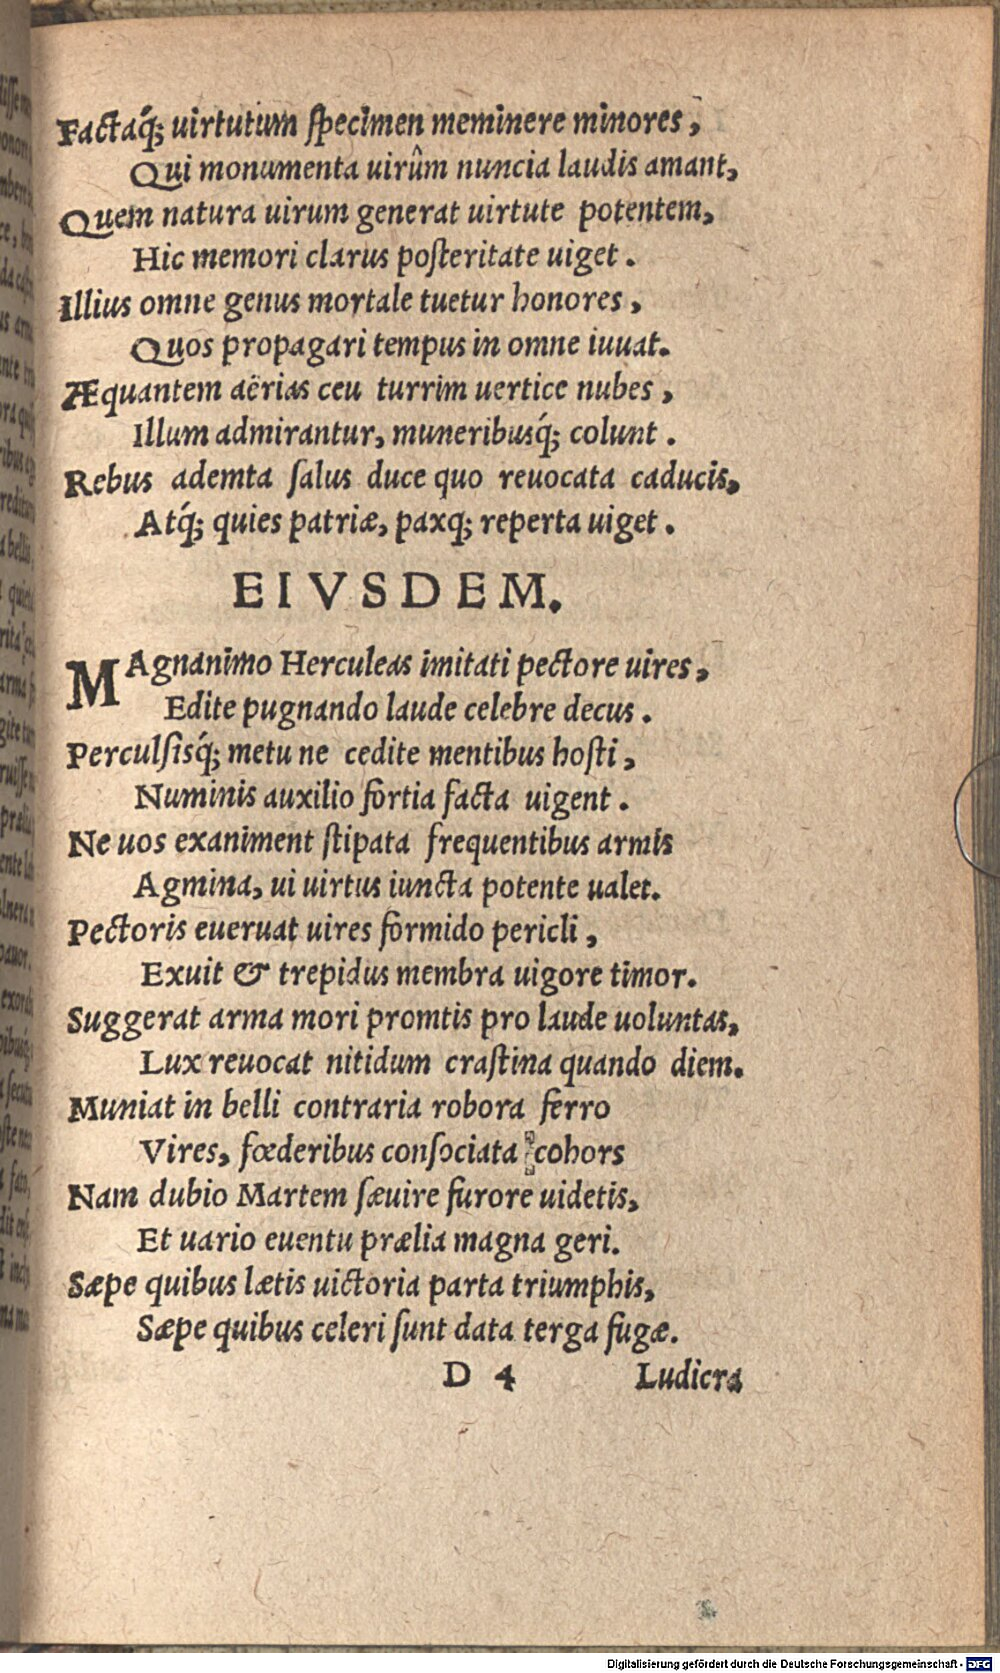 Factaq́; uirtutum ſpecimen meminere minores,
Qui monumenta uirûm nuncia laudis amant,
Quem natura uirum generat uirtute potentem,
Hic memori clarus poſteritate uiget.
Illius omne genus mortale tuetur honores,
Quos propagari tempus in omne iuuat.
Æquantem aërias ceu turrim uertice nubes,
Illum admirantur, muneribusq́; colunt.
Rebus ademta ſalus duce quo reuocata caducis,
Atq́; quies patriæ, paxq; reperta uiget.
EIVSDEM.
MAgnanimo Herculeas imitati pectore uires,
Edite pugnando laude celebre decus.
Perculſisq́; metu ne cedite mentibus hoſti,
Numinis auxilio fortia facta uigent.
Ne uos exaniment ſtipata frequentibus armis
Agmina, ui uirtus iuncta potente ualet.
Pectoris eueruat uires formido pericli,
Exuit & trepidus membra uigore timor.
Suggerat arma mori promtis pro laude uoluntas,
Lux reuocat nitidum craſtina quando diem.
Muniat in belli contraria robora ferro
Vires, fœderibus conſociata cohors
Nam dubio Martem ſæuire furore uidetis,
Et uario euentu prælia magna geri.
Sæpe quibus lætis uictoria parta triumphis,
Sæpe quibus celeri ſunt data terga fugæ.
D 4 Ludicra
Digitalisierung gefördert durch die Deutsche Forschungsgemeinschaft - DFG